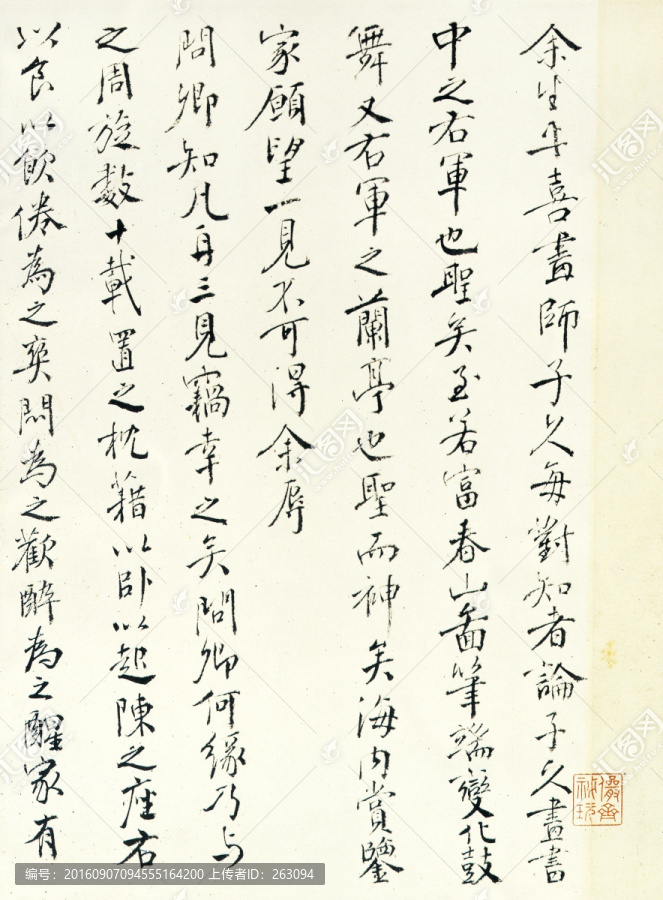 余生平喜畫師子久每對知者論子久畫書
中之右軍也聖矣至若富春山圖筆端變化鼓
舞又右軍之蘭亭也聖而神矣海內賞鑒
家願望一見不可得余辱
問卿知凡再三見竊幸之矣問卿何緣乃与
之周旋數十載置之枕籍以卧以起陳之座右
以食以飲倦為之爽悶為之歡醉為之醒家有
汇图网
编号：20160907094555164200 上传者ID：263094